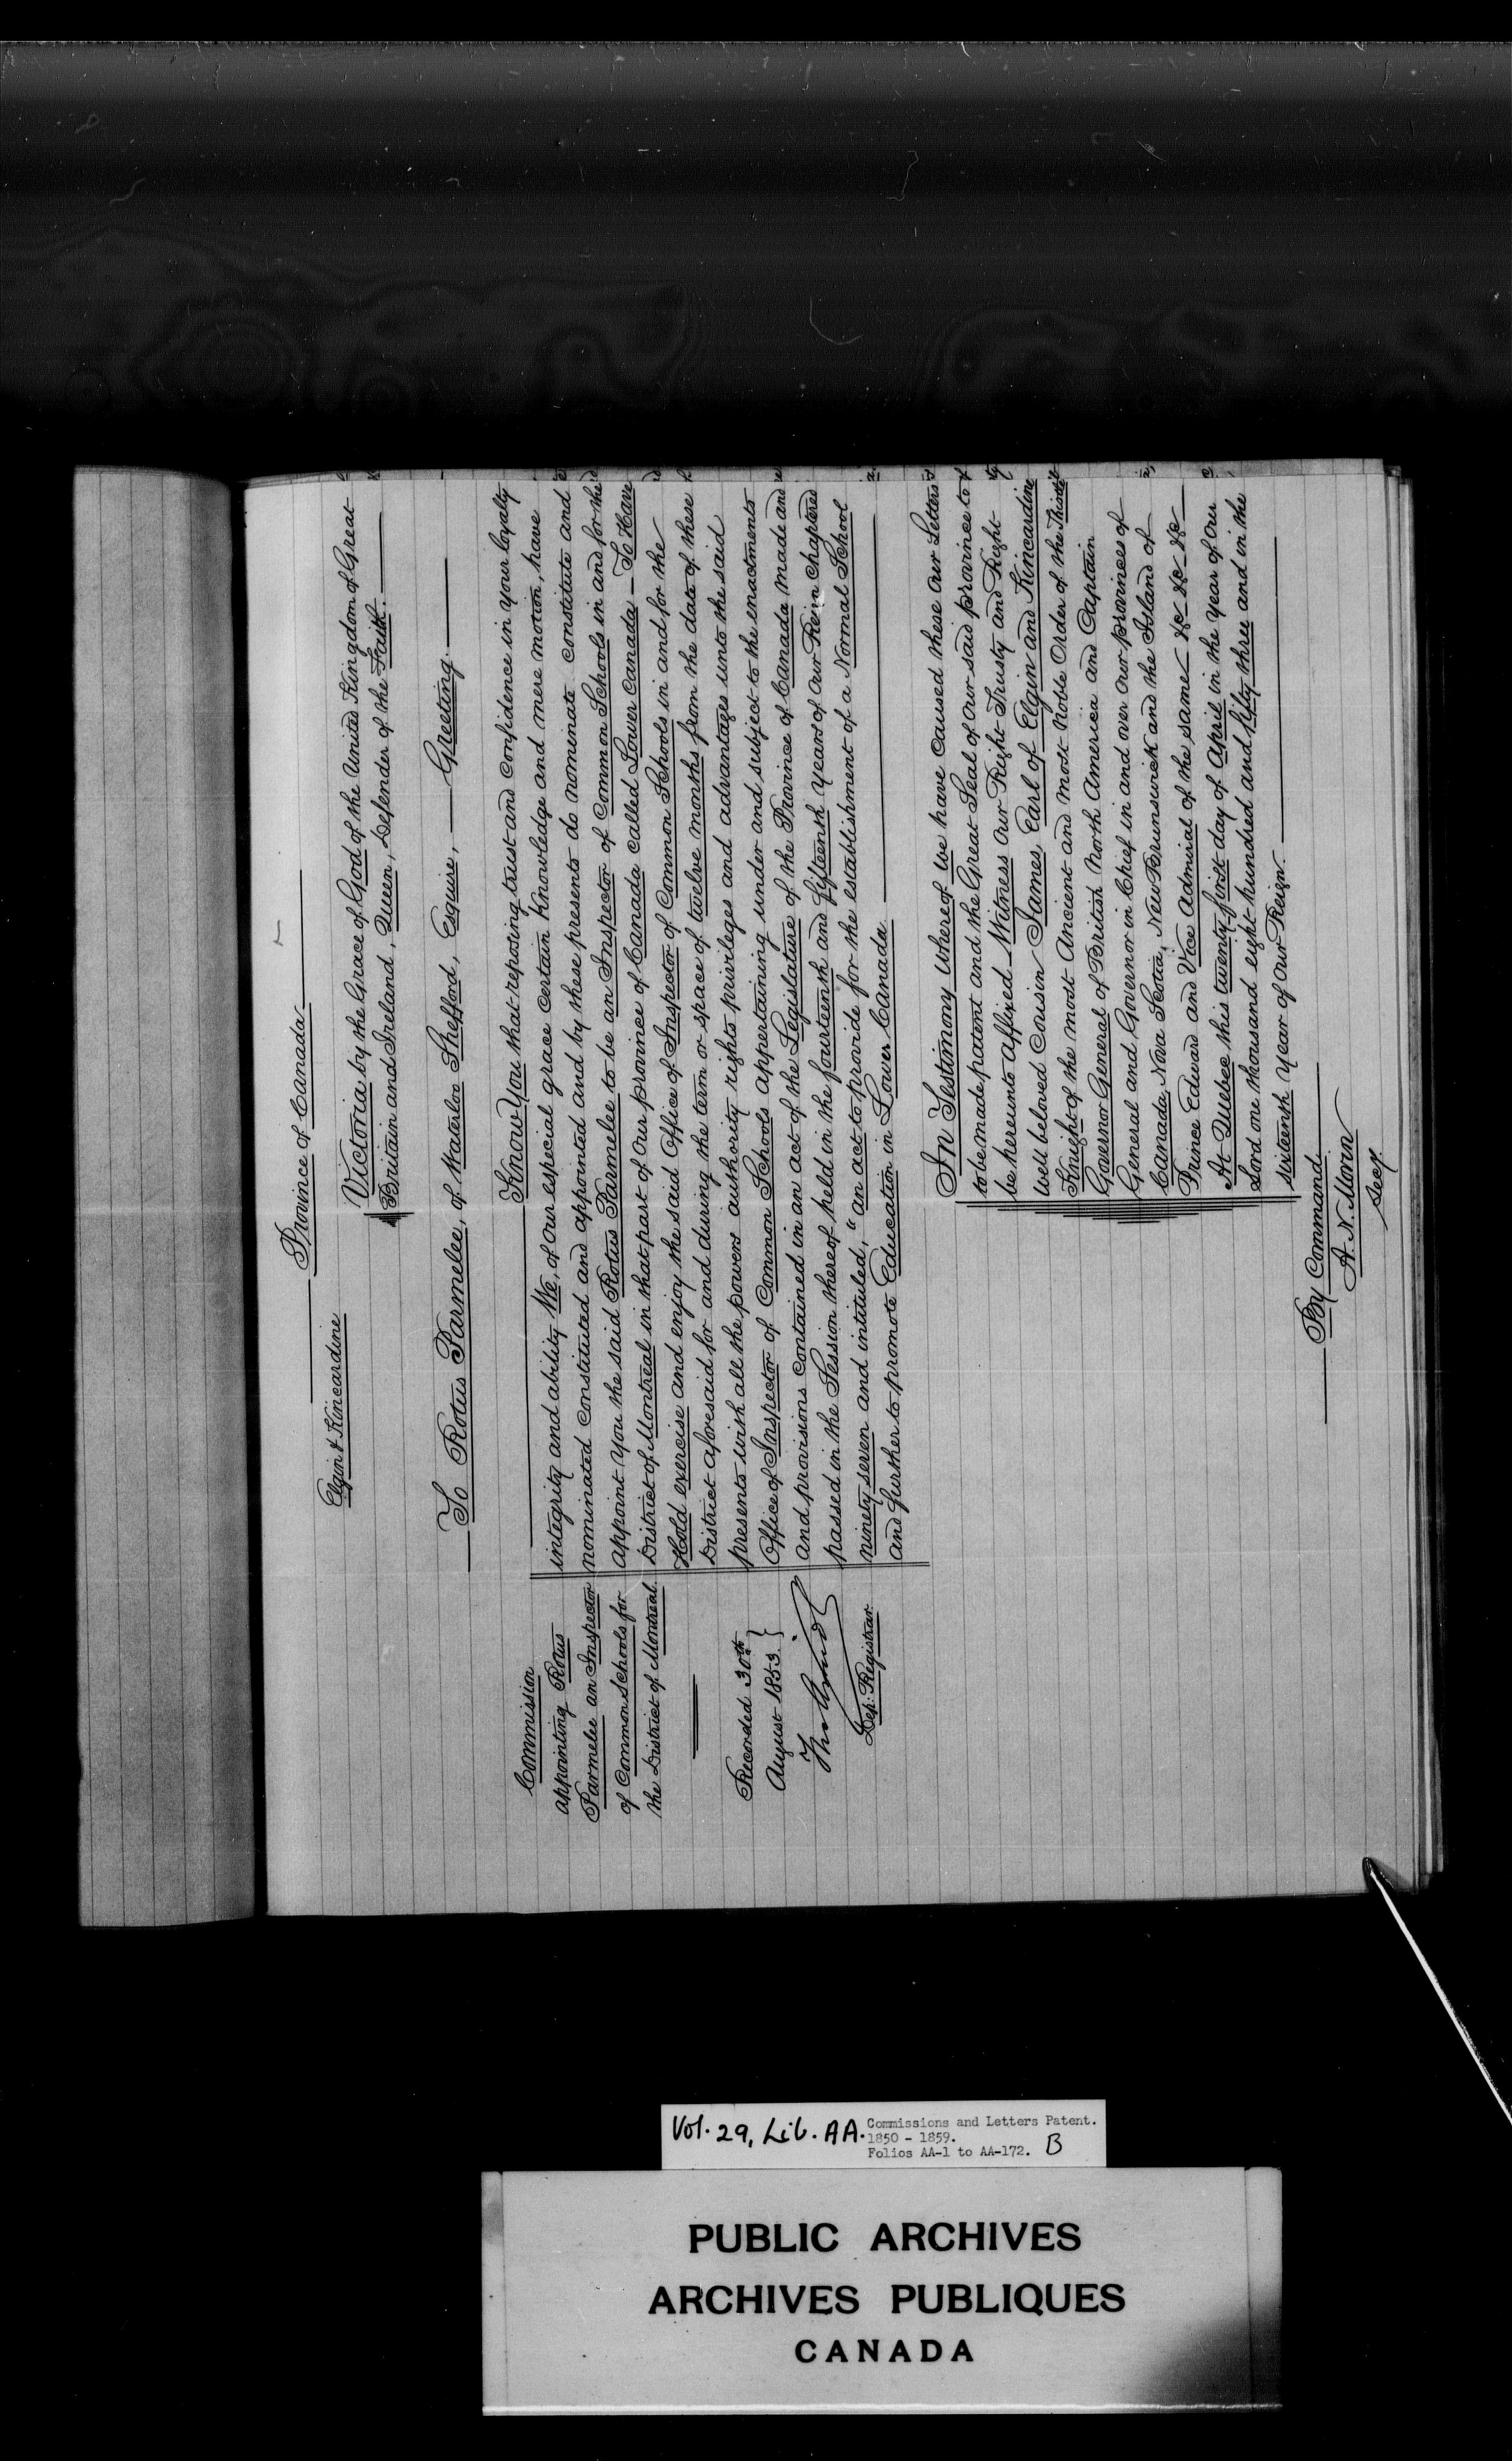 Province of Canada
Elgin & Kincardine
Victoria by the Grace of God of the United Kingdom of Great
Britain and Ireland, Queen, Defender of the Faith.
To Rotus Parmelee, of Waterloo Shefford, Esquire, Greeting.
Know You that reposing trust and confidence in your loyalty
integrity and ability We, of our especial grace certain knowledge and mere motion, have
nominated constituted and appointed and by these presents do nominate constitute and
appoint You the said Rotus Parmelee to be an Inspector of Common Schools in and for the
District of Montreal in that part of Our Province of Canada called Lower Canada — To Have
Hold exercise and enjoy the said Office of Inspector of Common Schools in and for the
District aforesaid for and during the term or space of twelve months from the date of these
presents with all the powers authority rights privileges and advantages unto the said
Office of Inspector of Common Schools appertaining under and subject to the enactments
and provisions contained in an act of the Legislature of the Province of Canada made and
passed in the Session thereof held in the fourteenth and fifteenth years of our Reign Chaptered
ninety seven and intituled, "an act to provide for the establishment of a Normal School
and further to promote Education in Lower Canada
Commission
appointing Rotus
Parmelee an Inspector
of Common Schools for
the District of Montreal.
Recorded 30th
August 1853. }
Dep: Registrar
In Testimony Whereof We have caused these Our Letters
to be made patent and the Great Seal of Our said province to
be hereunto Affixed — Witness Our Right Trusty and Right
Well beloved Cousin James, Earl of Elgin and Kincardine
Knight of the most Ancient and most Noble Order of the Thistle
Governor General of British North America and Captain
General and Governor in Chief in and over Our provinces of
Canada, Nova Scotia, New Brunswick and the Island of
Prince Edward and Vice Admiral of the same &c &c &c
At Quebec this twenty first day of April in the year of Our
Lord one thousand eight hundred and fifty three and in the
sixteenth Year of Our Reign.
By Command
A. N. Morin
Secy
Vol. 29, Lib. AA.
Commissions and Letters Patent.
1850 - 1859.
Folios AA-1 to AA-172. B
PUBLIC ARCHIVES
ARCHIVES PUBLIQUES
CANADA